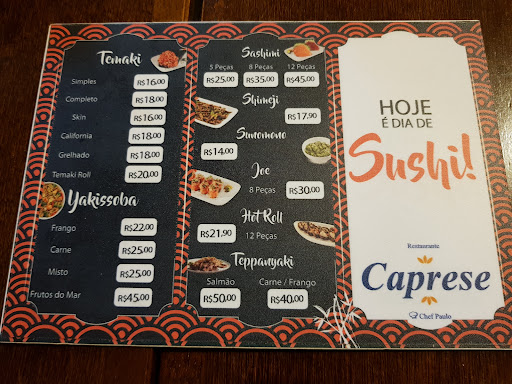 Temaki
Simples R$16,00
Completo R$18,00
Skin R$16,00
California R$18,00
Grelhado R$18,00
Temaki Roll R$20,00
Yakissoba
Frango R$22,00
Carne R$25,00
Misto R$25,00
Frutos do Mar R$45,00
Sashimi
5 Peças 8 Peças 12 Peças
R$25,00 R$35,00 R$45,00
Shimeji
R$17,90
Sunomono
R$14,00
Joe
8 Peças R$30,00
Hot Roll
R$21,90 12 Peças
Teppanyaki
Salmão Carne / Frango
R$50,00 R$40,00
HOJE
É DIA DE
Sushi!
Restaurante
Caprese
Chef Paulo